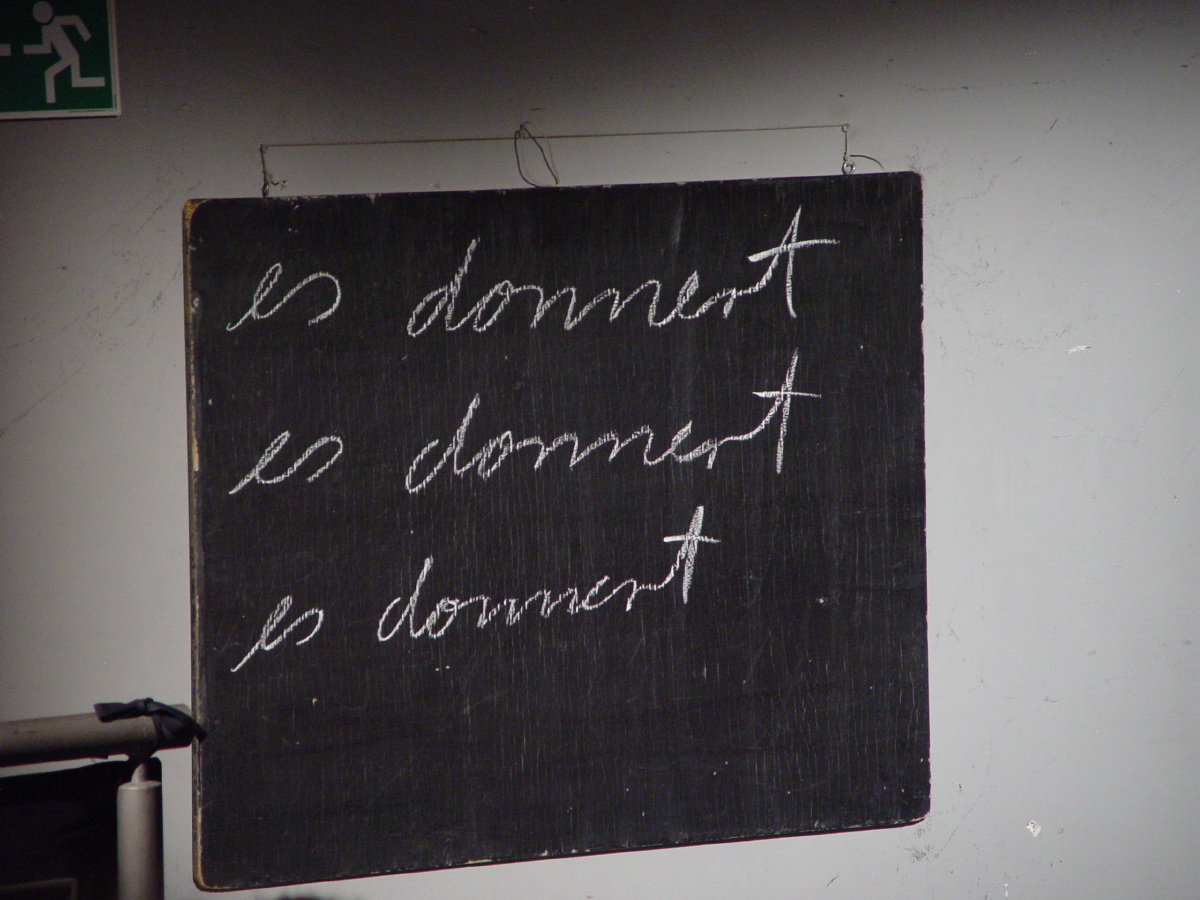 es donnert
es donnert
es donnert